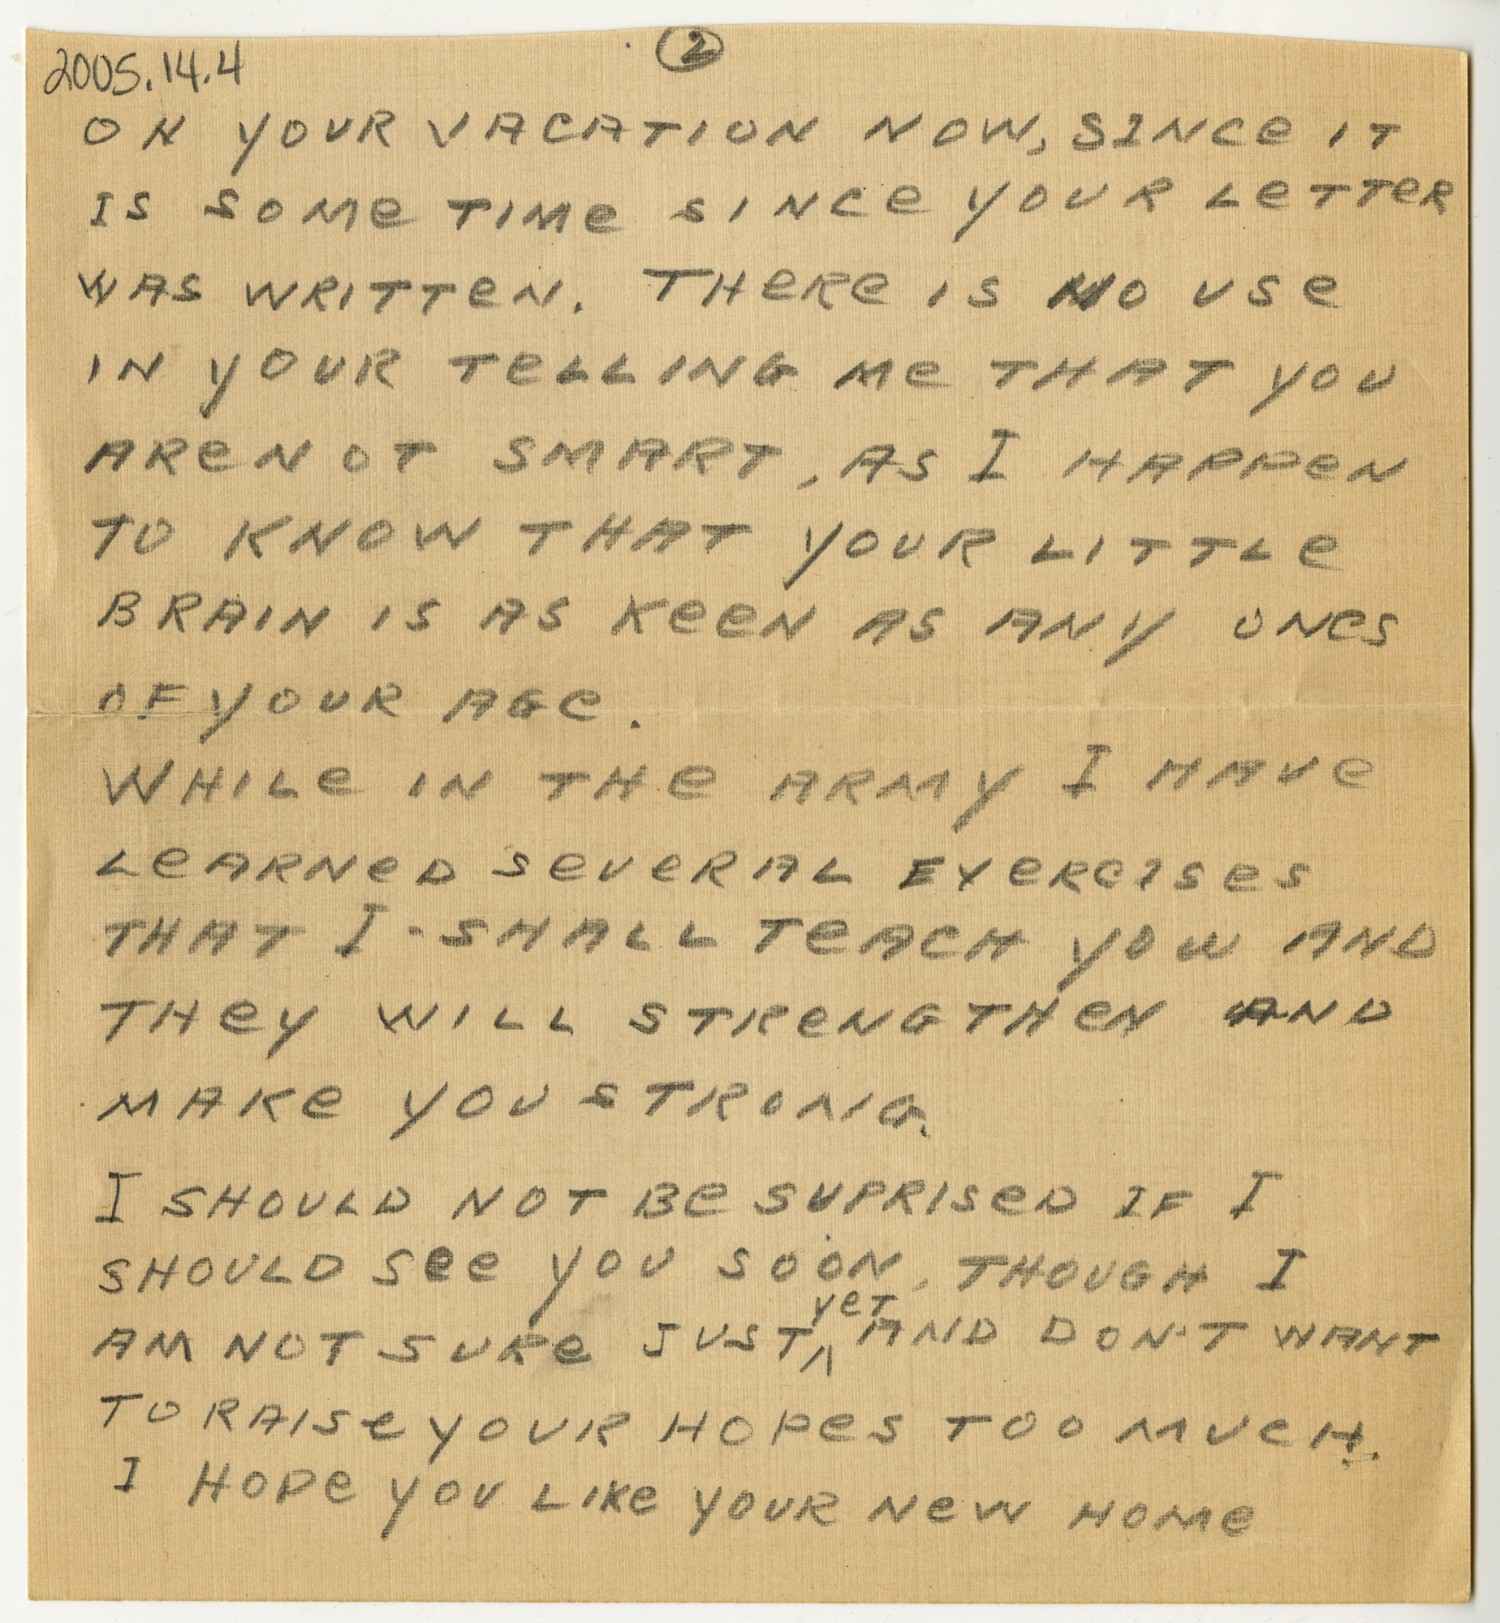 2005.14.4
2
ON YOUR VACATION NOW, SINCe IT
IS SOMe TIMe SINCe YOUR LeTTeR
WAS WRITTeN. THeRe IS NO USe
IN YOUR TeLLING Me THAT YOU
ARe NOT SMART, AS I HAPPeN
TO KNOW THAT YOUR LITTLe
BRAIN IS AS KeeN AS ANY ONeS
OF YOUR AGe.
WHILe IN THe ARMY I HAVe
LeARNeD SeVeRAL EXeRCISeS
THAT I SHALL TeACH YOU AND
THeY WILL STReNGTHeN AND
MAKe YOU STRONG.
I SHOULD NOT Be SUPRISeD IF I
SHOULD See YOU SOON, THOUGH I
AM NOT SURe JUST YeT AND DON'T WANT
TO RAISe YOUR HOPeS TOO MUCH.
I HOPe YOU LIKe YOUR NeW HOMe